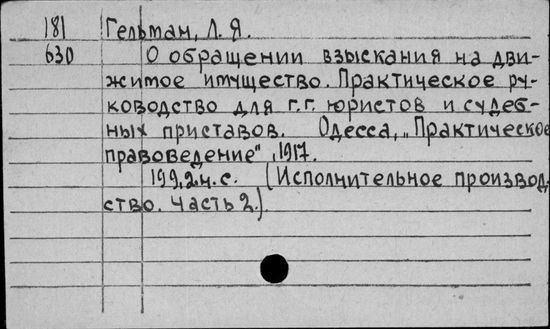 181 Гельман, Л. Я.
630 О обращении взыскания на дви-
жимое имущество. Практическое ру-
ководство для г.г. юристов и судеб-
ных приставов. Одесса, „Практическое
правоведение", 1917.
199, 2 н. с. (Исполнительное производ-
ство. Часть 2.).